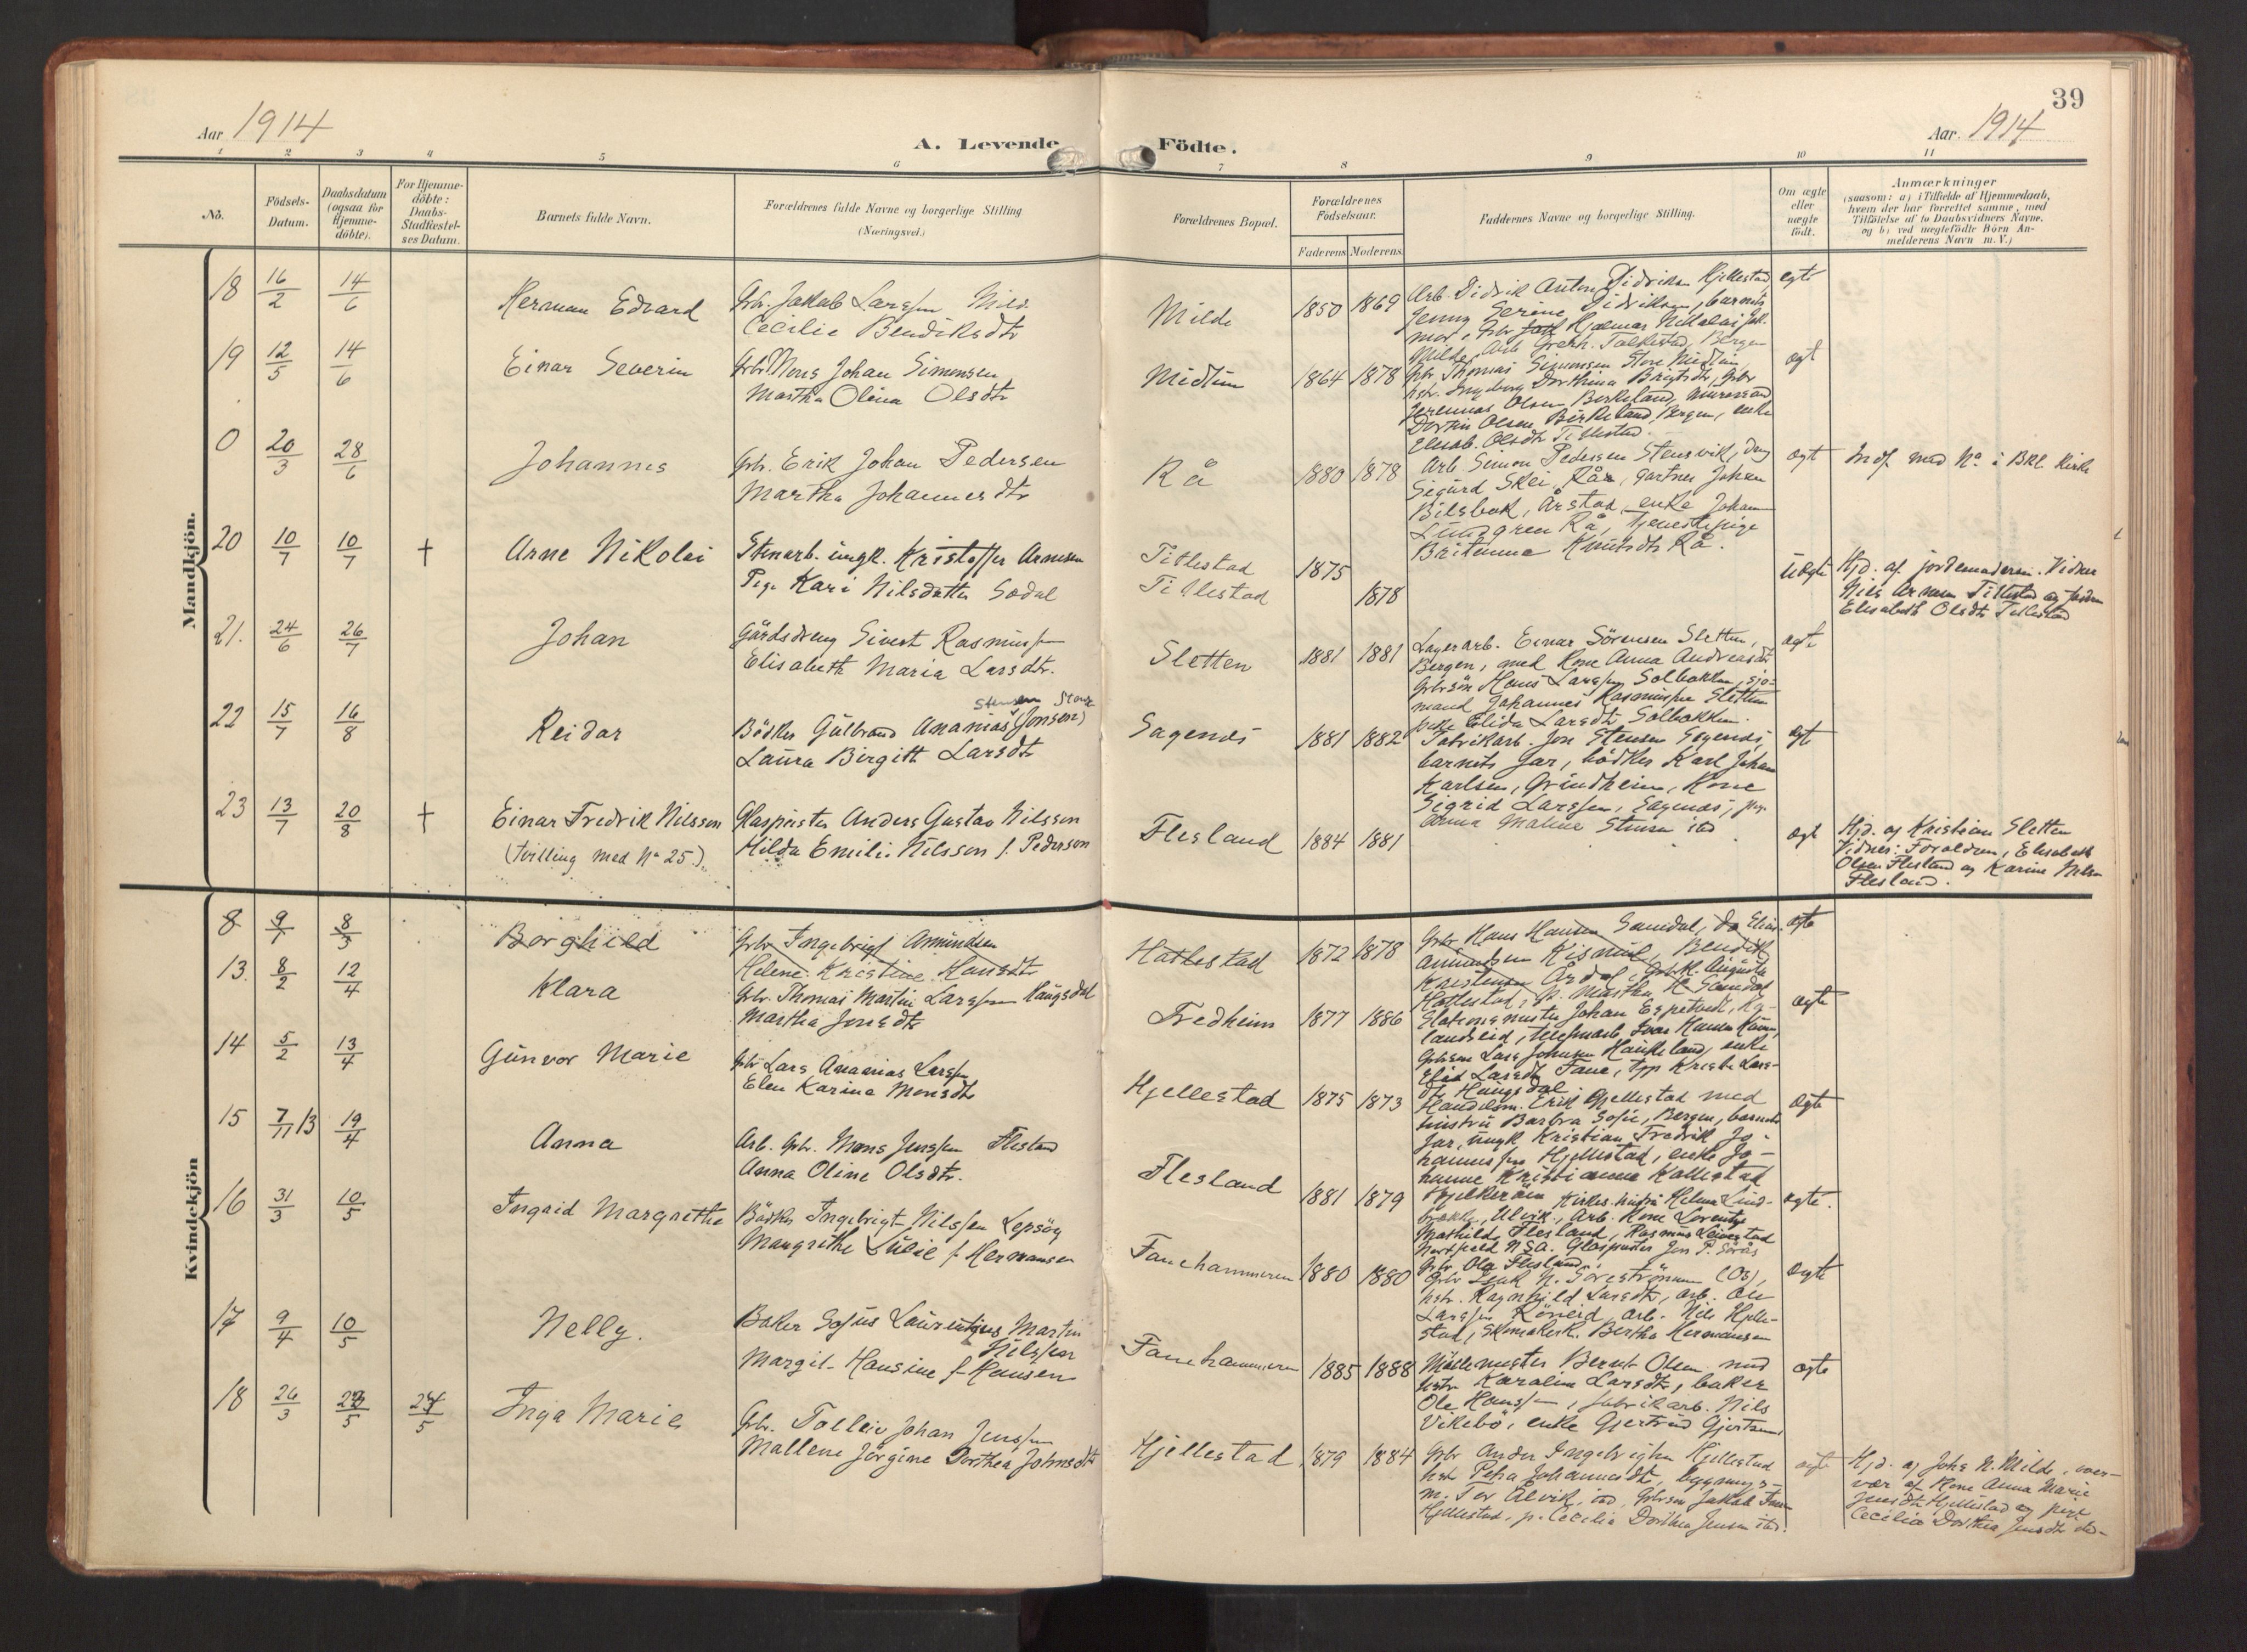 39
Aar 1914
A. Levende Födte.
Aar. 1914
1 2 3 4 5 6 7 8 9 10 11
No.
Födsels-
Datum.
Daabsdatum
(ogsaa for
Hjemme-
döbte).
For Hjemme-
döbte:
Daabs-
Stadfæstel-
ses Datum.
Barnets fulde Navn.
Forældrenes fulde Navne og borgerlige Stilling
(Næringsvei.)
Forældrenes Bopæl.
Forældrenes
Födselsaar.
Faderens Moderens
Faddernes Navne og borgerlige Stilling.
Om ægte
eller
uægte
födt.
Anmærkninger
(saasom: a) i Tilfælde af Hjemmedaab,
hvem der har forrettet samme, med
Tilföielse af to Daabsvidners Navne.
og b) ved uægtefödte Börn An-
melderens Navn m. V.)
Mandkjön.
18 16/2 14/6 Herman Edvard
Gbr. Jakob Larssen Milde
Cecilie Bendiksdtr
Milde 1850 1869
Arb. Didrik Anton Didriksen Hjellestad
Jenny Serine Didriksen, barnets
mor, Gbr Hjalmar Nikolai Jak.
Milde, Bergen
egte
19 12/5 14/6 Einar Severin
Gbr Mons Johan Simonsen
Martha Olina Olsdtr
Midtun 1864 1878
Gbr Thomas Simonsen Store Midtun
hstr. Ingeborg Dorthina Brigtsdtr, Gbr
Jeremias Olsen Birkeland, murermand
Olsen Birkeland, Bergen, enke
Elisab. Olsdtr Titlestad
ægt
0 20/3 28/6 Johannes
Gbr. Erik Johan Pedersen
Martha Johannesdtr
Rå 1880 1878
Arb. Simon Pedersen Stensvik, dreng
Sigurd Skei, Rå, gartner Johan
Bilsbak, Årstad, enke Johan
Lundgren Rå, tjenestepige
Britanna Knutsdtr Rå.
ægt
Indf. med No. i Bkl. Kirke
20 10/7 10/7 † Arne Nikolai
Stenarb. ungk. Kristoffer Arnesen
Pige Kari Nilsdatter Sodal
Titlestad 1875
Titlestad 1878
uægte
Hjd. af jordemoderen. Vidner
Nils Arnesen Titlestad og
Elisabeth Olsdtr Titlestad
21. 24/6 26/7 Johan
Gårdsdreng Sivert Rasmussen
Elisabeth Maria Larsdtr.
Sletten 1881 1881
Lagerarb. Einar Sörensen Sletten,
Bergen, med Kone Anna Andreasdtr
Gbrsön Hans Larssen Solbakken, sjö-
mand Johannes Rasmussen Sletten
Elida Larsdtr Solbakken.
ægte
22 15/7 16/8 Reidar
Bödker Gulbrand Ananias (Jonsen)
Laura Birgitt Larsdtr
Sagenes 1881 1882
Fabrikarb. Jon Stensen Sagenes,
barnets far, bödker Karl Johan
Karlsen, Grindheim, Kone
Sigrid Larssen, Sagenes, pige
Anna Malina Stensen std
ægt
23 13/7 20/8 † Einar Fredrik Nilsson
(tvilling med No 25.)
Glaspuster Anders Gustav Nilsson
Hilda Emilie Nilsson f. Pederson
Flesland 1884 1881
ægt
Hjd. af Kristian Sletten
Vidner: Forældrene, Elisabeth
Olsen Flesland og Karine Nilsen
Flesland.
Kvindekjön
8 9/1 8/3 Borghild
Gbr Ingebrigt Amundsen
Helene Kristine Hansdtr
Hatlestad 1872 1878
Gbr Hans Hansen Samdal, do
Amundsen Kismul, Bendik
Kristensen Årdal, Augusta
Hatlestad, p. Martha H. Samdal
ægte
13. 8/2 12/4 Klara
Gbr. Thomas Martin Larssen Haugsdal
Martha Jonsdtr
Fredheim 1877 1886
Stationsmester Johan Espetvedt,
landseid,
Lars Johnsen Haukeland, enke
Larsdtr Fane, Kristi Lars-
dtr Haugsdal
ægte
14 5/2 13/4 Gunvor Marie
Gbr Lars Ananias Larssen
Elen Karina Monsdtr
Hjellestad 1875 1873
Handelsm. Erik Hjellestad med
hustru Barbra Sofie, Bergen, barnets
far, ungk Kristian Fredrik Jo-
hannessen Hjellestad, enke Jo-
hanne Kristianna Kallestad
ægte
15 7/11 13 19/4 Anna
Arb. Gbr. Mons Jenssen Flesland
Anna Oline Olsdtr.
Flesland 1881 1879
Kirkes. hustru Helena Lind-
brække, Ulvik, Arb. Kone Lorentze
Mathilde Flesland, Rasmus
Nordfjeld N.S.A. Glaspuster Jon P. Sörås
Gbr Ola Flesland.
ægte.
16 31/3 10/5 Ingrid Margrethe
Bödker Ingebrigt Nilssen Lepsöy
Margrithe Julie f. Hermansen
Fanehammeren 1880 1880
Gbr N. Töreströmmen (Os),
hstr. Ragnhild Larsdtr, arb. Ole
Larssen Röneid, arb. Nils Hjelle-
stad, Skomakerk. Bertha Hermansen
ægte
17 9/4 10/5 Nelly.
Baker Sofus Laurentius Martin
Nilssen
Margit Hansine f Hansen
Fanehammeren 1885 1888
Möllemester Bernt Olsen med
hstr Karoline Larsdtr, baker
Ole Hanssen, fabrikarb. Nils
Vikebö, enke Gjertrud Gjertsen
ægte
18 26/3 23/5 24/5 Inga Marie
Gbr. Tolleiv Johan Jenssen
Mallene Jörgine Dorthea Johnsdtr
Hjellestad 1879 1884
Gbr Anders Ingebrigtsen Hjellestad
hst Petra Johannesdtr, bygnings-
m. Tor Ålvik, std, Gbrsön Jakob
Hjellestad, p. Cecilia Dorthea Jensen std.
ægte
Hjd. af Johs N. Milde, over-
vær af Kone Anna Marie
Jensdtr Hjellestad og pige
Cecilia Dorthea Jensdtr